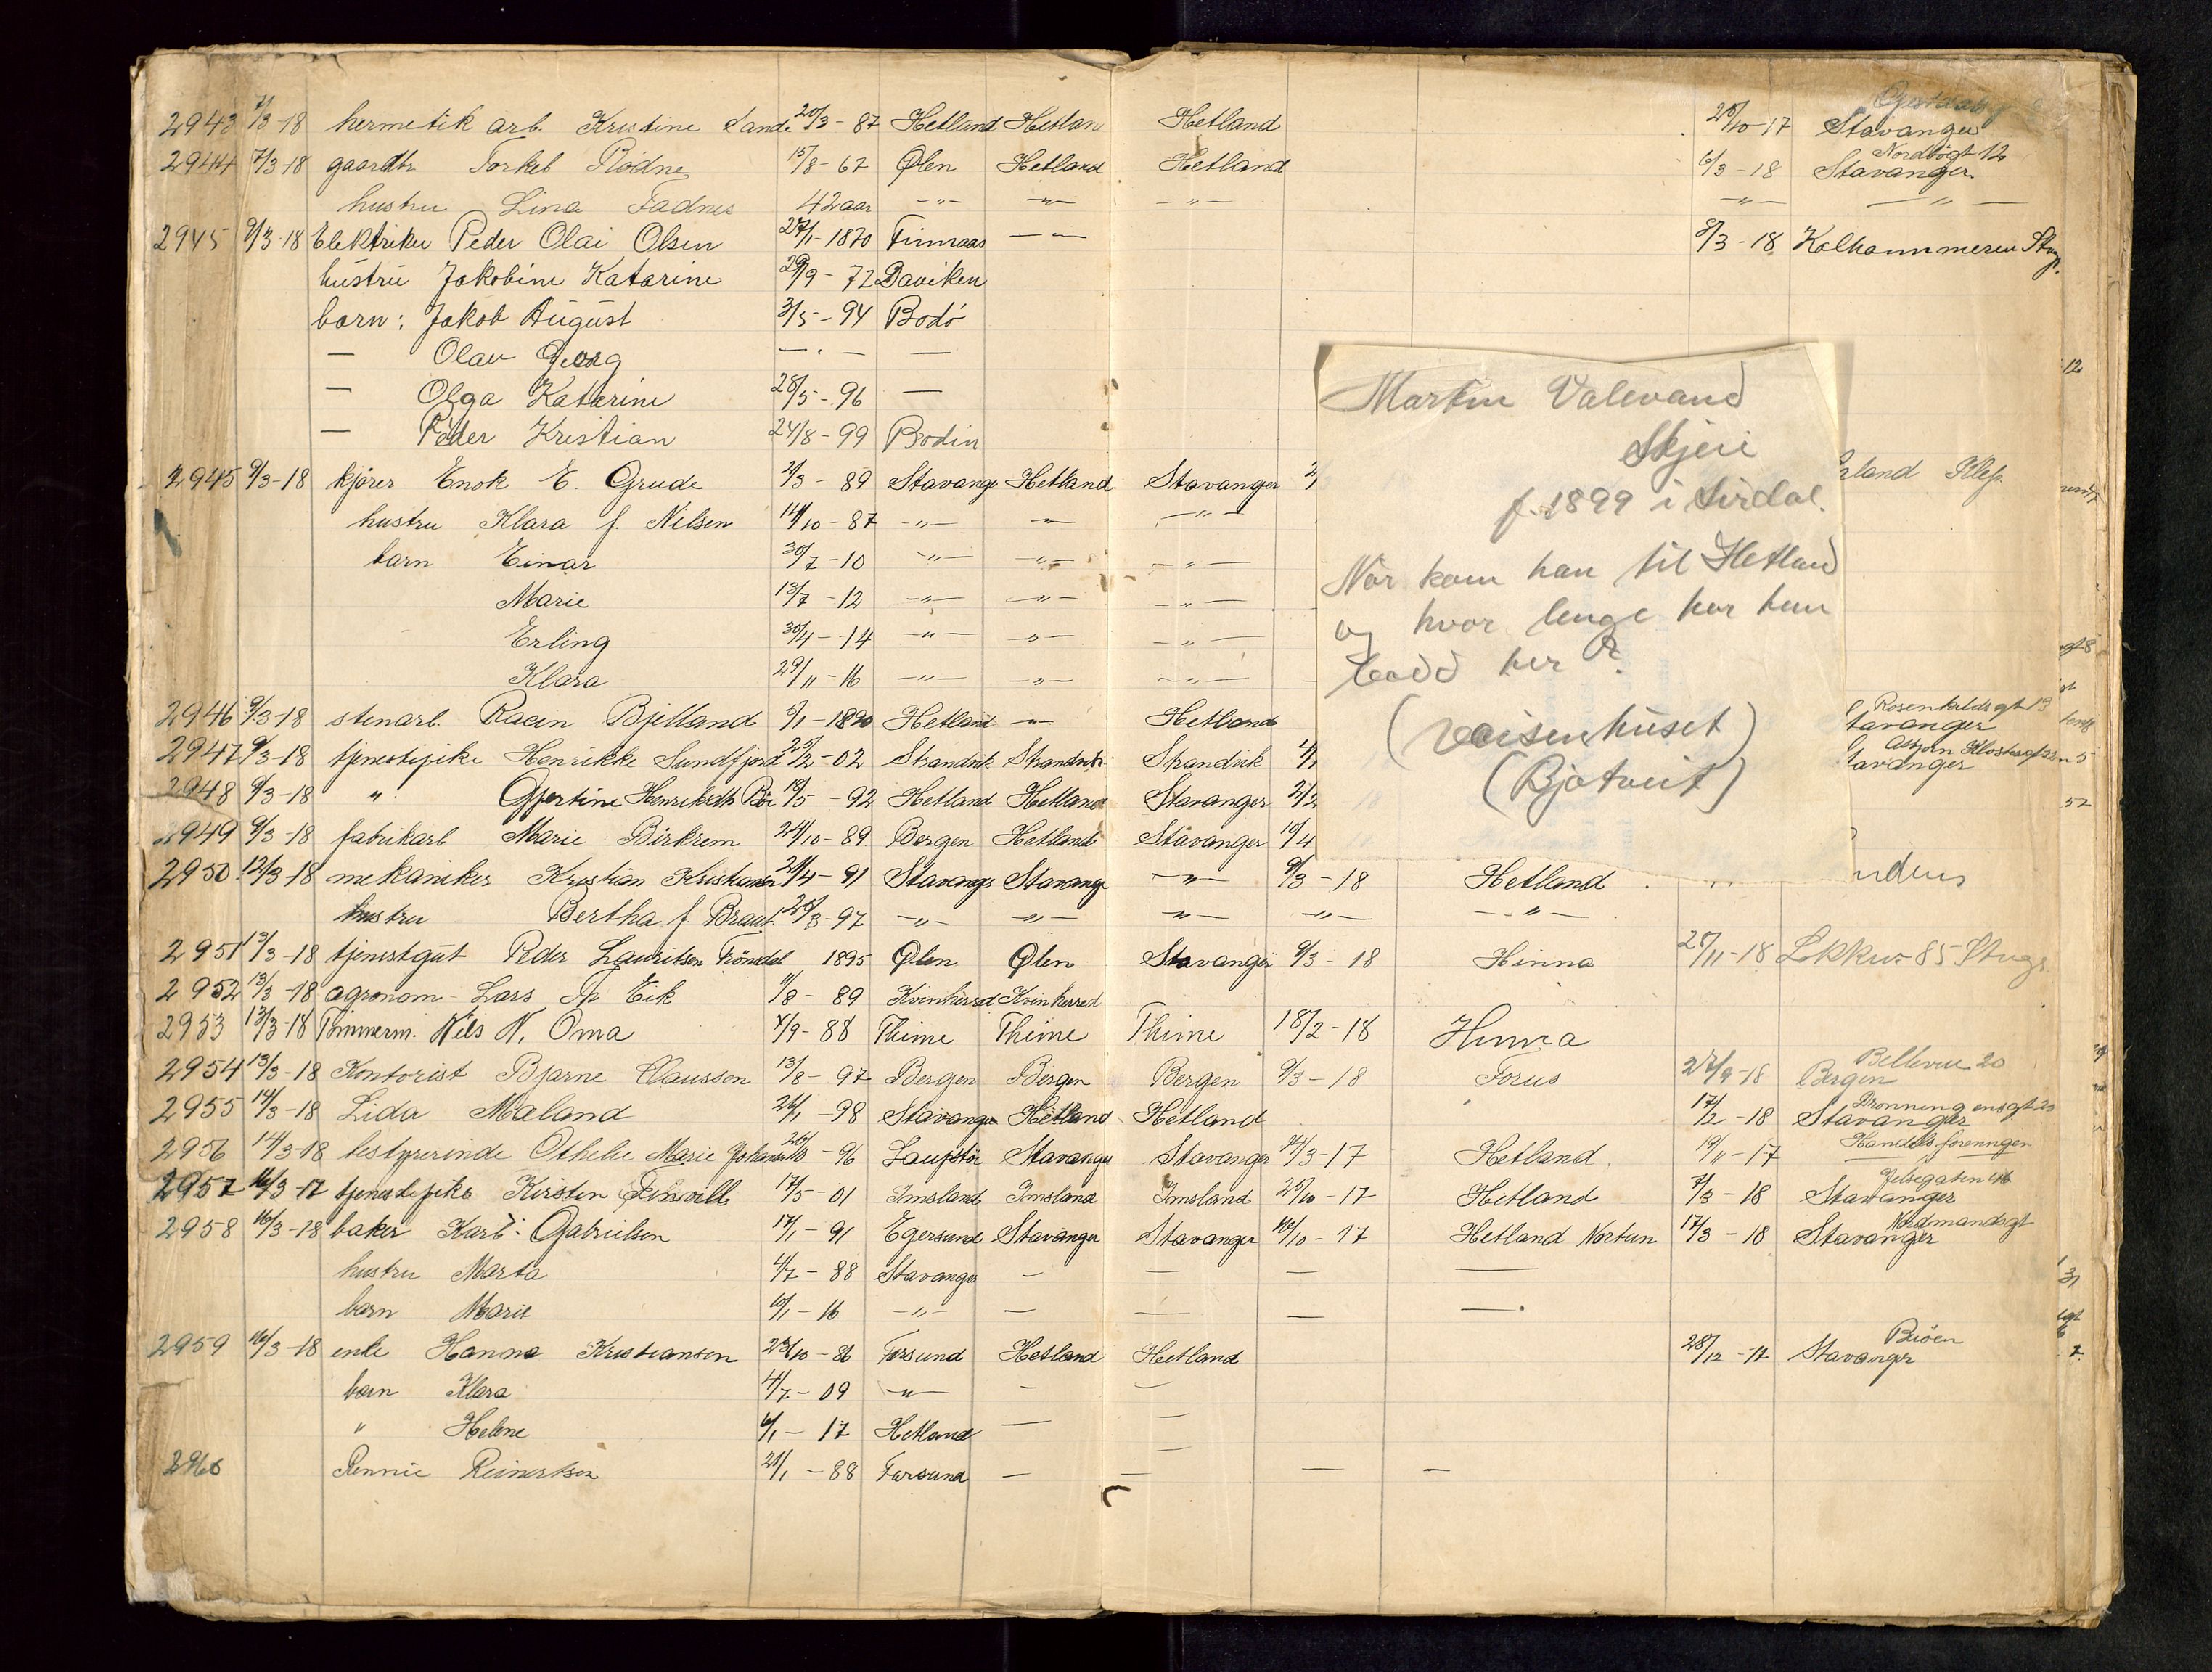 2943 7/3-18 hermetik arb. Kristine Lande 20/3-87 Hetland Hetland Hetland 28/10-17 Stavanger
2944 7/3-18 gaardbr Torkel Rödne 15/8-67 Ølen Hetland Hetland 6/3-18 Stavanger Nordbögt 12
hustru Lina Fadnes 42 aar -"- -"- -"- -"- -"-
2945 9/3-18 Elektriker Peder Olai Olsen 27/1-1870 Finnaas -"- 8/3-18 Kalhammeren Stvgr.
hustru Jakobine Katarine 29/9-72 Daviken
barn: Jakob August 3/5-94 Bodö
— Olav Georg —.— —
— Olga Katarine 28/5-96 —
— Peder Kristian 24/8-99 Bodin
2945 9/3-18 kjörer Enok E. Grude 2/3-89 Stavanger Hetland Stavanger Klep
hustru Klara f. Nilsen 14/10-87 -"- -"- -"-
barn Einar 30/7-10 -"- -"- -"-
Marie 13/7-12 -"- -"- -"-
Erling 30/4-14 -"- -"- -"-
Klara 29/11-16 -"- -"- -"-
2946 9/3-18 stenarb. Rasen Bjelland 5/1-1890 Hetland -"- Hetland tavanger
2947 9/3-18 tjenestepike Henrikke Sundfjord 22/2-02 Strandvik Strandvik Strandvik avanger
2948 9/3-18 " Gjertine Henriksdtr Böe 18/5-92 Hetland Hetland Stavanger
2949 9/3-18 fabrikarb Marie Birkrem 24/10-89 Bergen Hetland Stavanger
2950 12/3-18 mekaniker Kristian Kristiansen 21/4-91 Stavanger Stavanger -"- 9/3-18 Hetland
hustru Bertha f. Braut 20/3-97 -"- -"- -"- -"- -"-
2951 13/3-18 tjenestgut Peder Lauritsen Tröndal 1895 Ølen Ølen Stavanger 9/3-18 Hinna 25/11-18 Stvgr.
2952 13/3-18 agronom Lars Eik 11/8-89 Kvinherred Kvinherred
2953 13/3-18 Tömmerm. Nils N. Oma 4/9-88 Thime Thime Thime 18/2-18 Hinna
2954 13/3-18 Kontorist Bjarne Claussen 13/8-97 Bergen Bergen Bergen 9/3-18 Forus 27/9-18 Bergen Bellevue 20
2955 14/3-18 Lida Maland 26/1-98 Stavanger Hetland Hetland 17/2-18 Stavanger
2956 14/3-18 bestyrerinde Othelie Marie 26/1-96 Stavanger Stavanger 14/3-17 Hetland. 19/11-17 Handelsforeningen
2957 16/3-17 tjenestepike Kirsten 17/5-01 Imsland Imsland Imsland 25/10-17 Hetland 7/3-18 Stavanger Jelsegaten
2958 16/3-18 baker Karl Gabrielsen 17/1-91 Egersund Stavanger Stavanger 10/10-17 Hetland 17/3-18 Stavanger Nordmandsgt
hustru Marta 4/7-88 Stavanger — — — —
barn Marie 10/1-16 -"- — — — —
2959 16/3-18 enke Hanna Kristiansen 23/10-86 Farsund Hetland Hetland 28/12-17 Stavanger Bröen
barn Klara 4/7-09 -"- — —
" Helene 6/1-17 Hetland — —
2960 Rennie Reinertsen 21/1-88 Farsund — — — —
Martin Valevand
Skjeie
f. 1899 i Sirdal.
Når kom han til Hetland
og hvor lenge har han
bodd her?
(Vaisenhuset)
(Bjotveit)